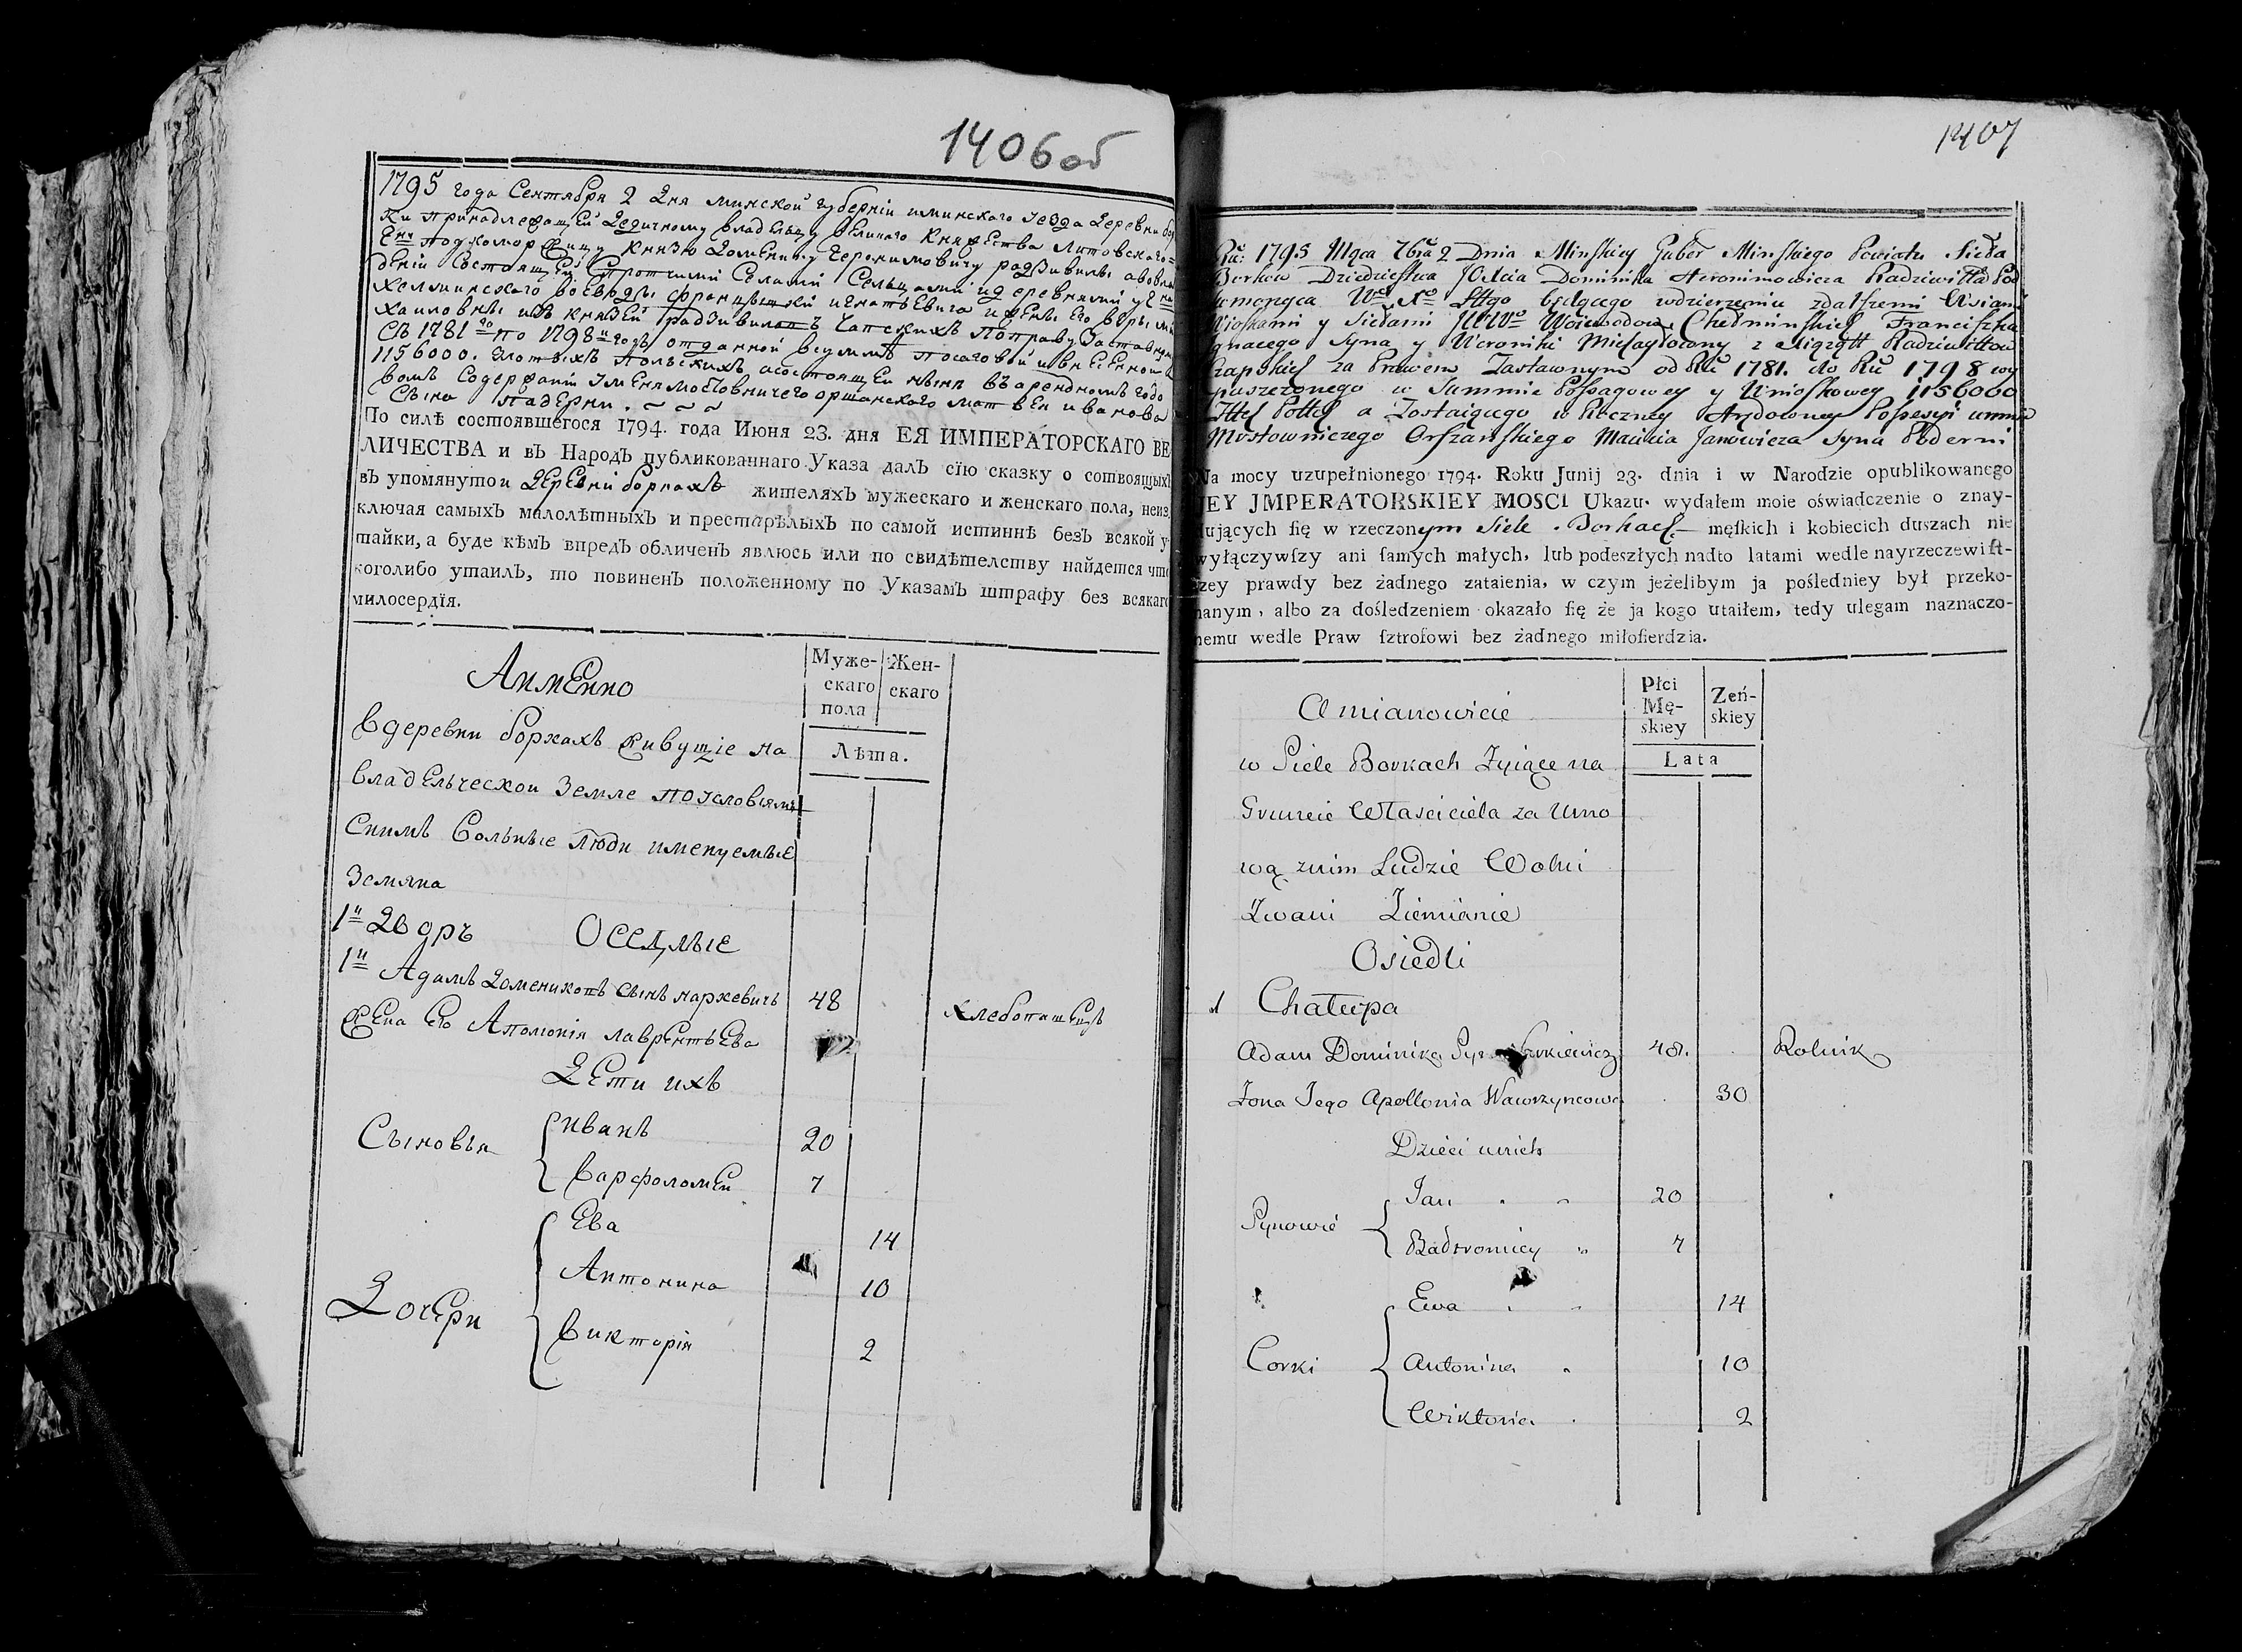 1406об
1795 года Сентября 2 дня минской губернии и минского уезда деревни бор
ки принадлежащей дедичному владельцу великаго Княжества Литовскаго
подкоморжицу Князю Доменику Геронимовичу радзивилы
Състоящей Спротчими Селами Сельцами и деревнями
хелминскаго воеводы францышка игнатьевича и жены его веры ми
хаиловны изъ князей радзивиловъ Чапскихъ по праву заставному
Съ 1781 го по 1798 и годъ отданной всумме посаговой и внесенной
1156000. злотыхъ польскихъ а состоящей ныне въ арендномъ годо
вомъ содержании имена мостовничего оршанского матвея иванова
Сына падерни. ~ ~ ~
По силѣ состоявшегося 1794. года Июня 23. дня ЕЯ ИМПЕРАТОРСКАГО ВЕ
ЛИЧЕСТВА и въ Народъ публикованнаго Указа далъ сїю сказку о сотвоящыхъ
въ упомянутои деревни боркахъ жителяхъ мужескаго и женскаго пола, неиз
ключая самыхъ малолѣтныхъ и престарѣлыхъ по самой истиннѣ безъ всякой у
тайки, а буде кѣмъ впредъ обличенъ явлюсь или по свидѣтелству найдется что
коголибо утаилъ, то повиненъ положенному по Указамъ штрафу без всякаго
милосердїя.
Аименно
Муже-
скаго
пола
Жен-
скаго
Лѣта.
вдеревни боркахъ живущие на
владельческои земле поусловиямъ
Снимъ вольные люди именуемые
земяна
1й дворъ Оседлые
1й Адамъ Домениковъ сынъ наркевичъ 48 хлебопашецъ
жена его Аполония лаврентьева
Дети ихъ
Сыновья
иванъ 20
варфоломей 7
Дочери
Ева 14
Антонина 10
виктория 2
1407
Ru: 1795 Mca 7bra 2 Dnia Minskiey Guber Minskiego Powiatu Sieła
Borkow Dziedzictwa Dominika Heronimowicza Radziwiłła Pod
będącego wdzierzeniu zdalszemi Wsiami
Wioskami y Siełami Woiewodow Chełminskich Franciszka
Ignacego Syna y Weroniki Michayłowny z Xiążąt Radziwiłłow
Czapskich za Prawem Zastawnym od Ru 1781. do Ru 1798 wy
puszczonego w Summie Possagowey y Wnioskowey 1156000
a Zostaiącego w Roczney Arędowney Possesyi
Mostowniczego Orszanskiego Macieia Janowicza Syna Paderni
Na mocy uzupełnionego 1794. Roku Junij 23. dnia i w Narodzie opublikowanego
JEY JMPERATORSKIEY MOSCI Ukazu. wydałem moie oświadczenie o znay-
dujących ſię w rzeczonym Siele Borkach męſkich i kobiecich duszach nie
wyłączywſzy ani ſamych małych, lub podeszłych nadto latami wedle nayrzeczewiſt-
szey prawdy bez żadnego zataienia, w czym jeżelibym ja pośledniey był przeko-
nanym, albo za dośledzeniem okazało ſię że ja kogo utaiłem, tedy ulegam naznaczo-
nemu wedle Praw ſztrofowi bez żadnego miłoſierdzia.
A mianowicie
Płci
Mę-
skiey
Zeń-
skiey
Lata
w Siele Borkach Żyiące na
Gruncie Właściciela za Umo
wą znim Ludzie Wolni
Zwani Ziemianie
Osiedli
1 Chałupa
Adam Dominika Syn 48. Rolnik
Zona Jego Apollonia Wawrzyncowa 30
Dzieci unich
Synowie
Jan 20
Bałtromiey 7
Corki
Ewa 14
Antonina 10
Wiktoria 2